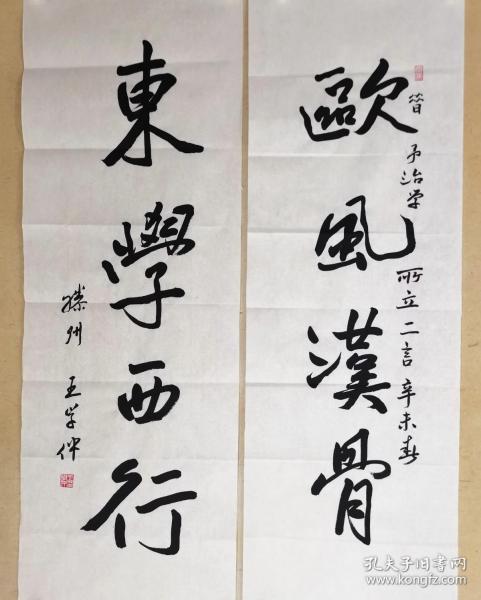 歐風漢骨
昔予治學所立二言辛未春
東學西行
滕州王学仲
孔夫子旧书网
www.kongfz.com